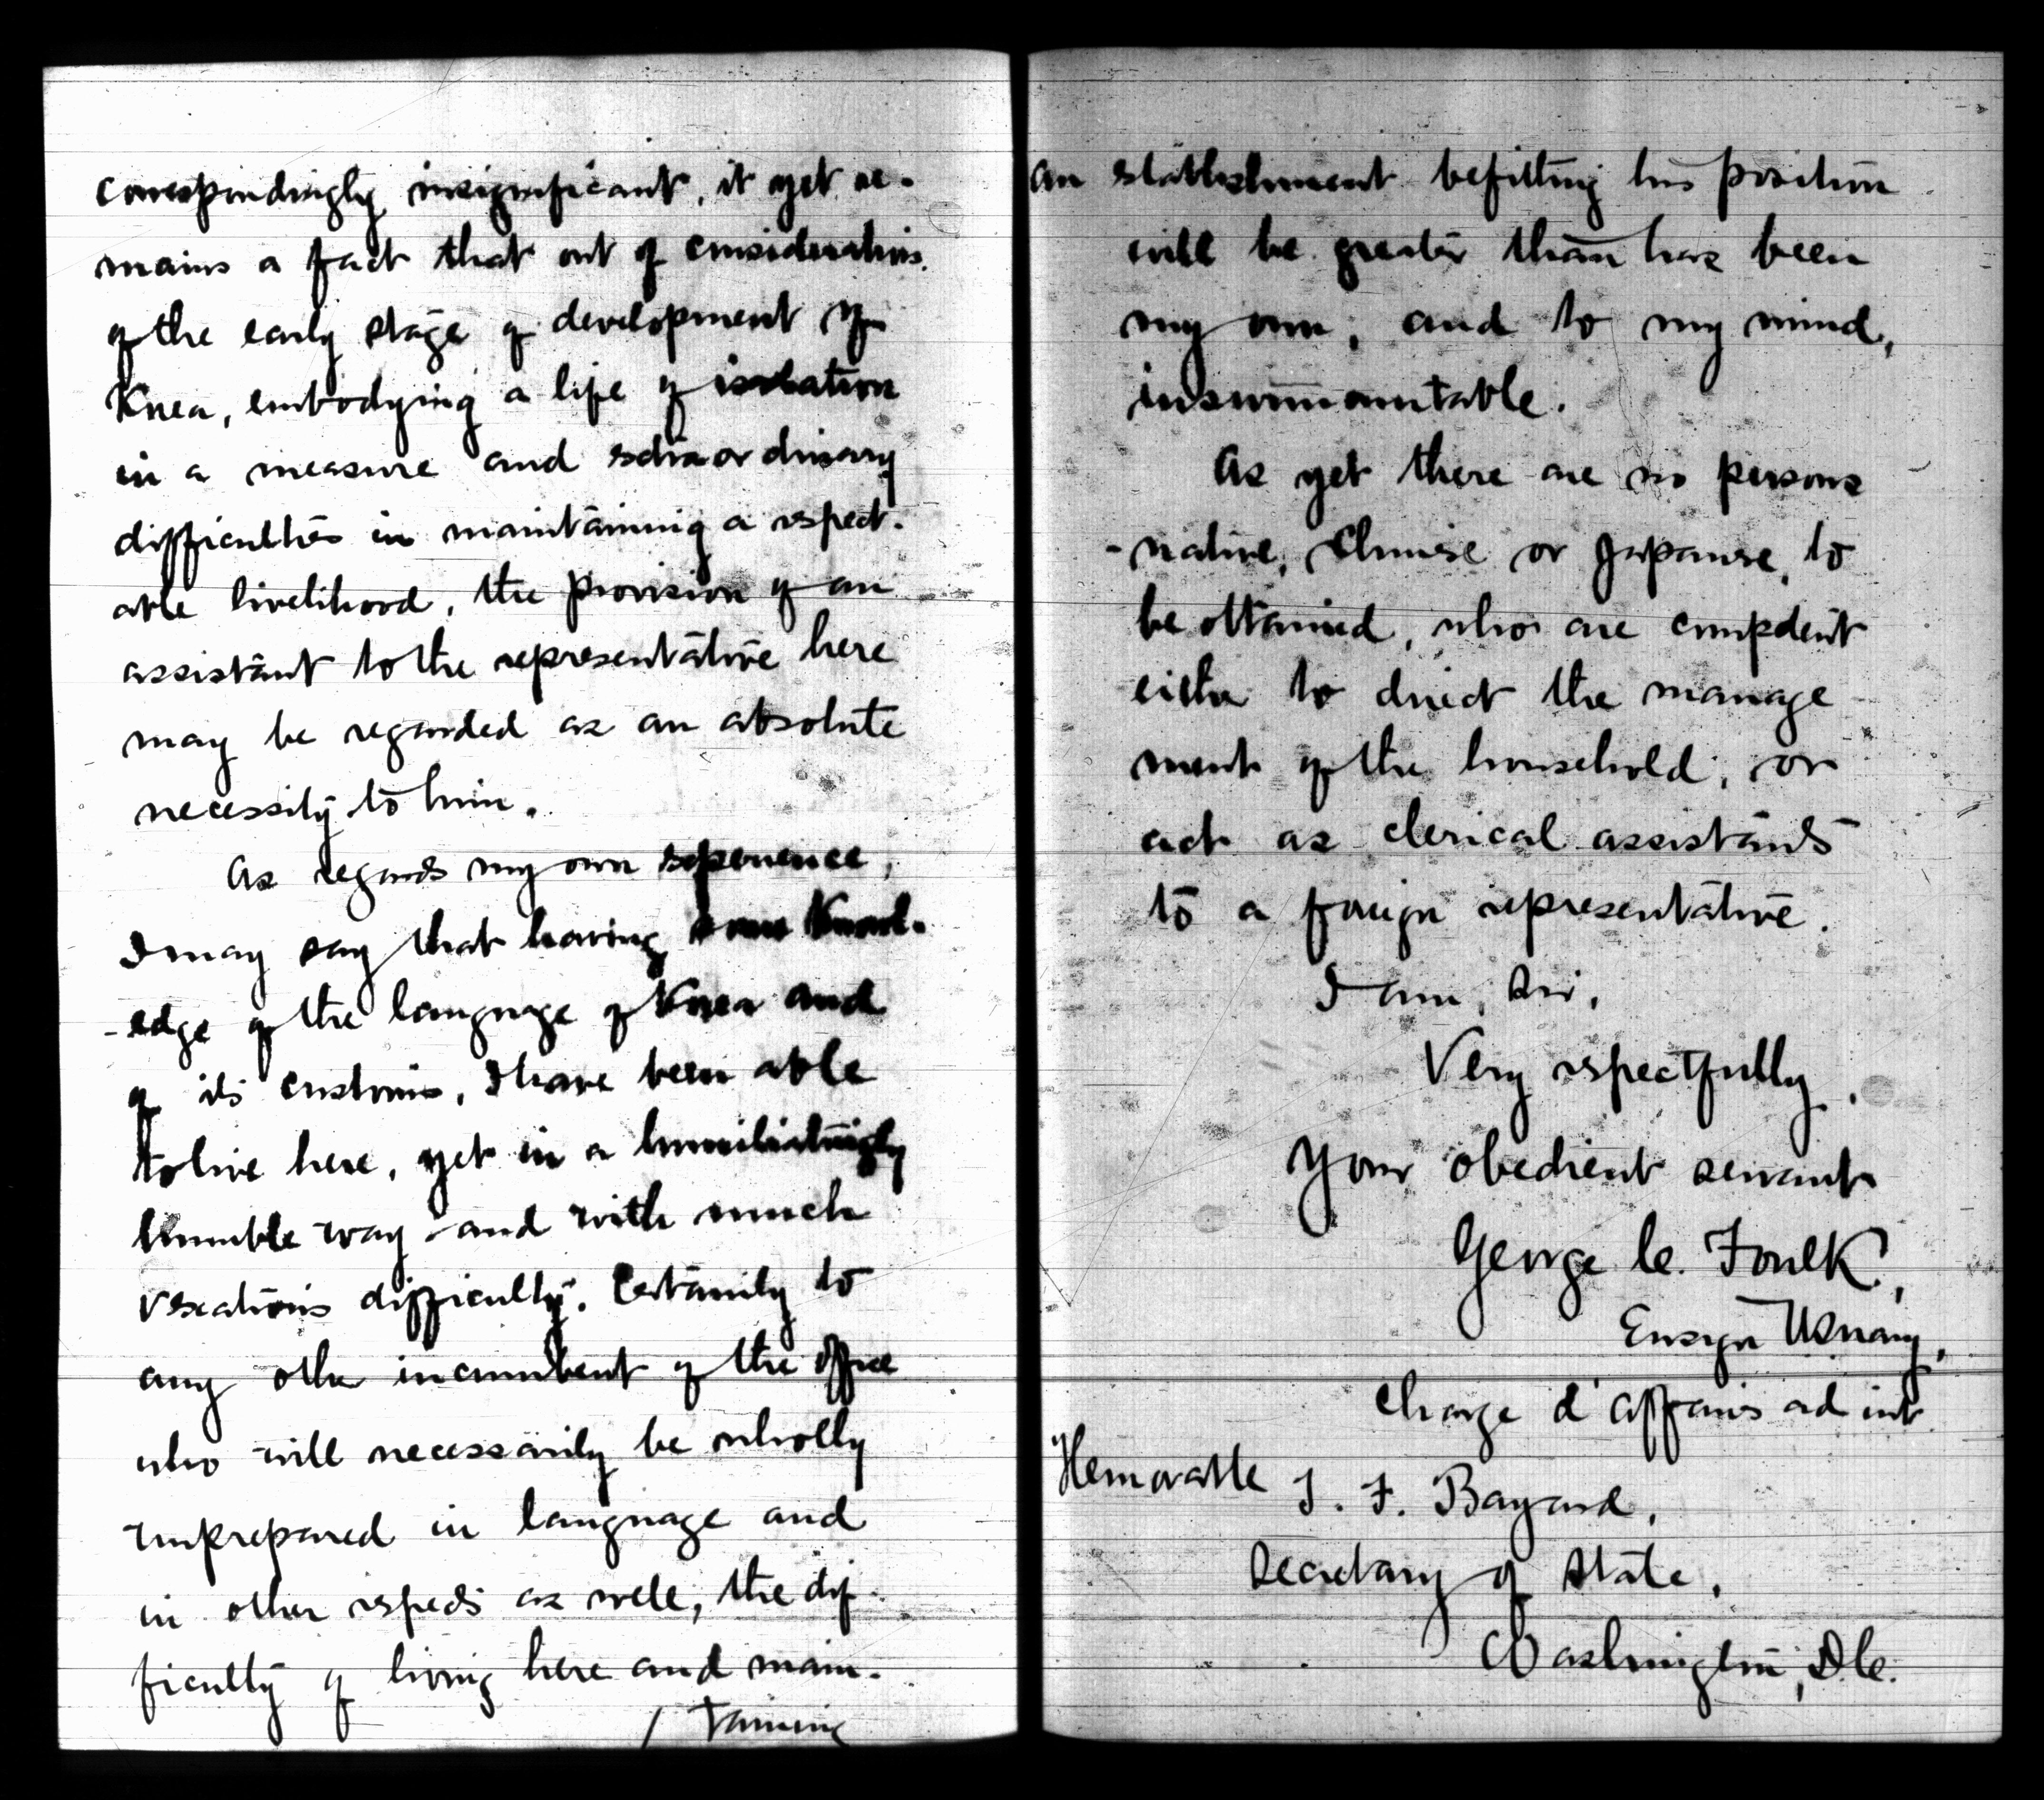 correspondingly insignificant, it yet re-
mains a fact that out of considerations
of the early stage of development of
Korea, embodying a life of isolation
in a measure and extraordinary
difficulties in maintaining a respect-
able livelihood, the provision of an
assistant to the representative here
may be regarded as an absolute
necessity to him.
As regards my own experience,
I may say that having some knowl-
-edge of the language of Korea and
of its customs, I have been able
to live here, yet in a humiliatingly
humble way and with much
vexatious difficulty. Certainly to
any other incumbent of the office
who will necessarily be wholly
unprepared in language and
in other respects as well, the dif-
ficulty of living here and main-
/ taining
an establishment befitting his position
will be greater than has been
my own, and to my mind,
insurmountable.
As yet there are no persons
-native, Chinese or Japanese, to
be obtained, who are competent
either to direct the manage
ment of the household, or
act as clerical assistants
to a foreign representative.
I am, Sir,
Very respectfully,
Your obedient servant
George C. Foulk,
Ensign US Navy,
Charge d'Affaires ad int.
Honorable T. F. Bayard,
Secretary of State,
Washington, D.C.